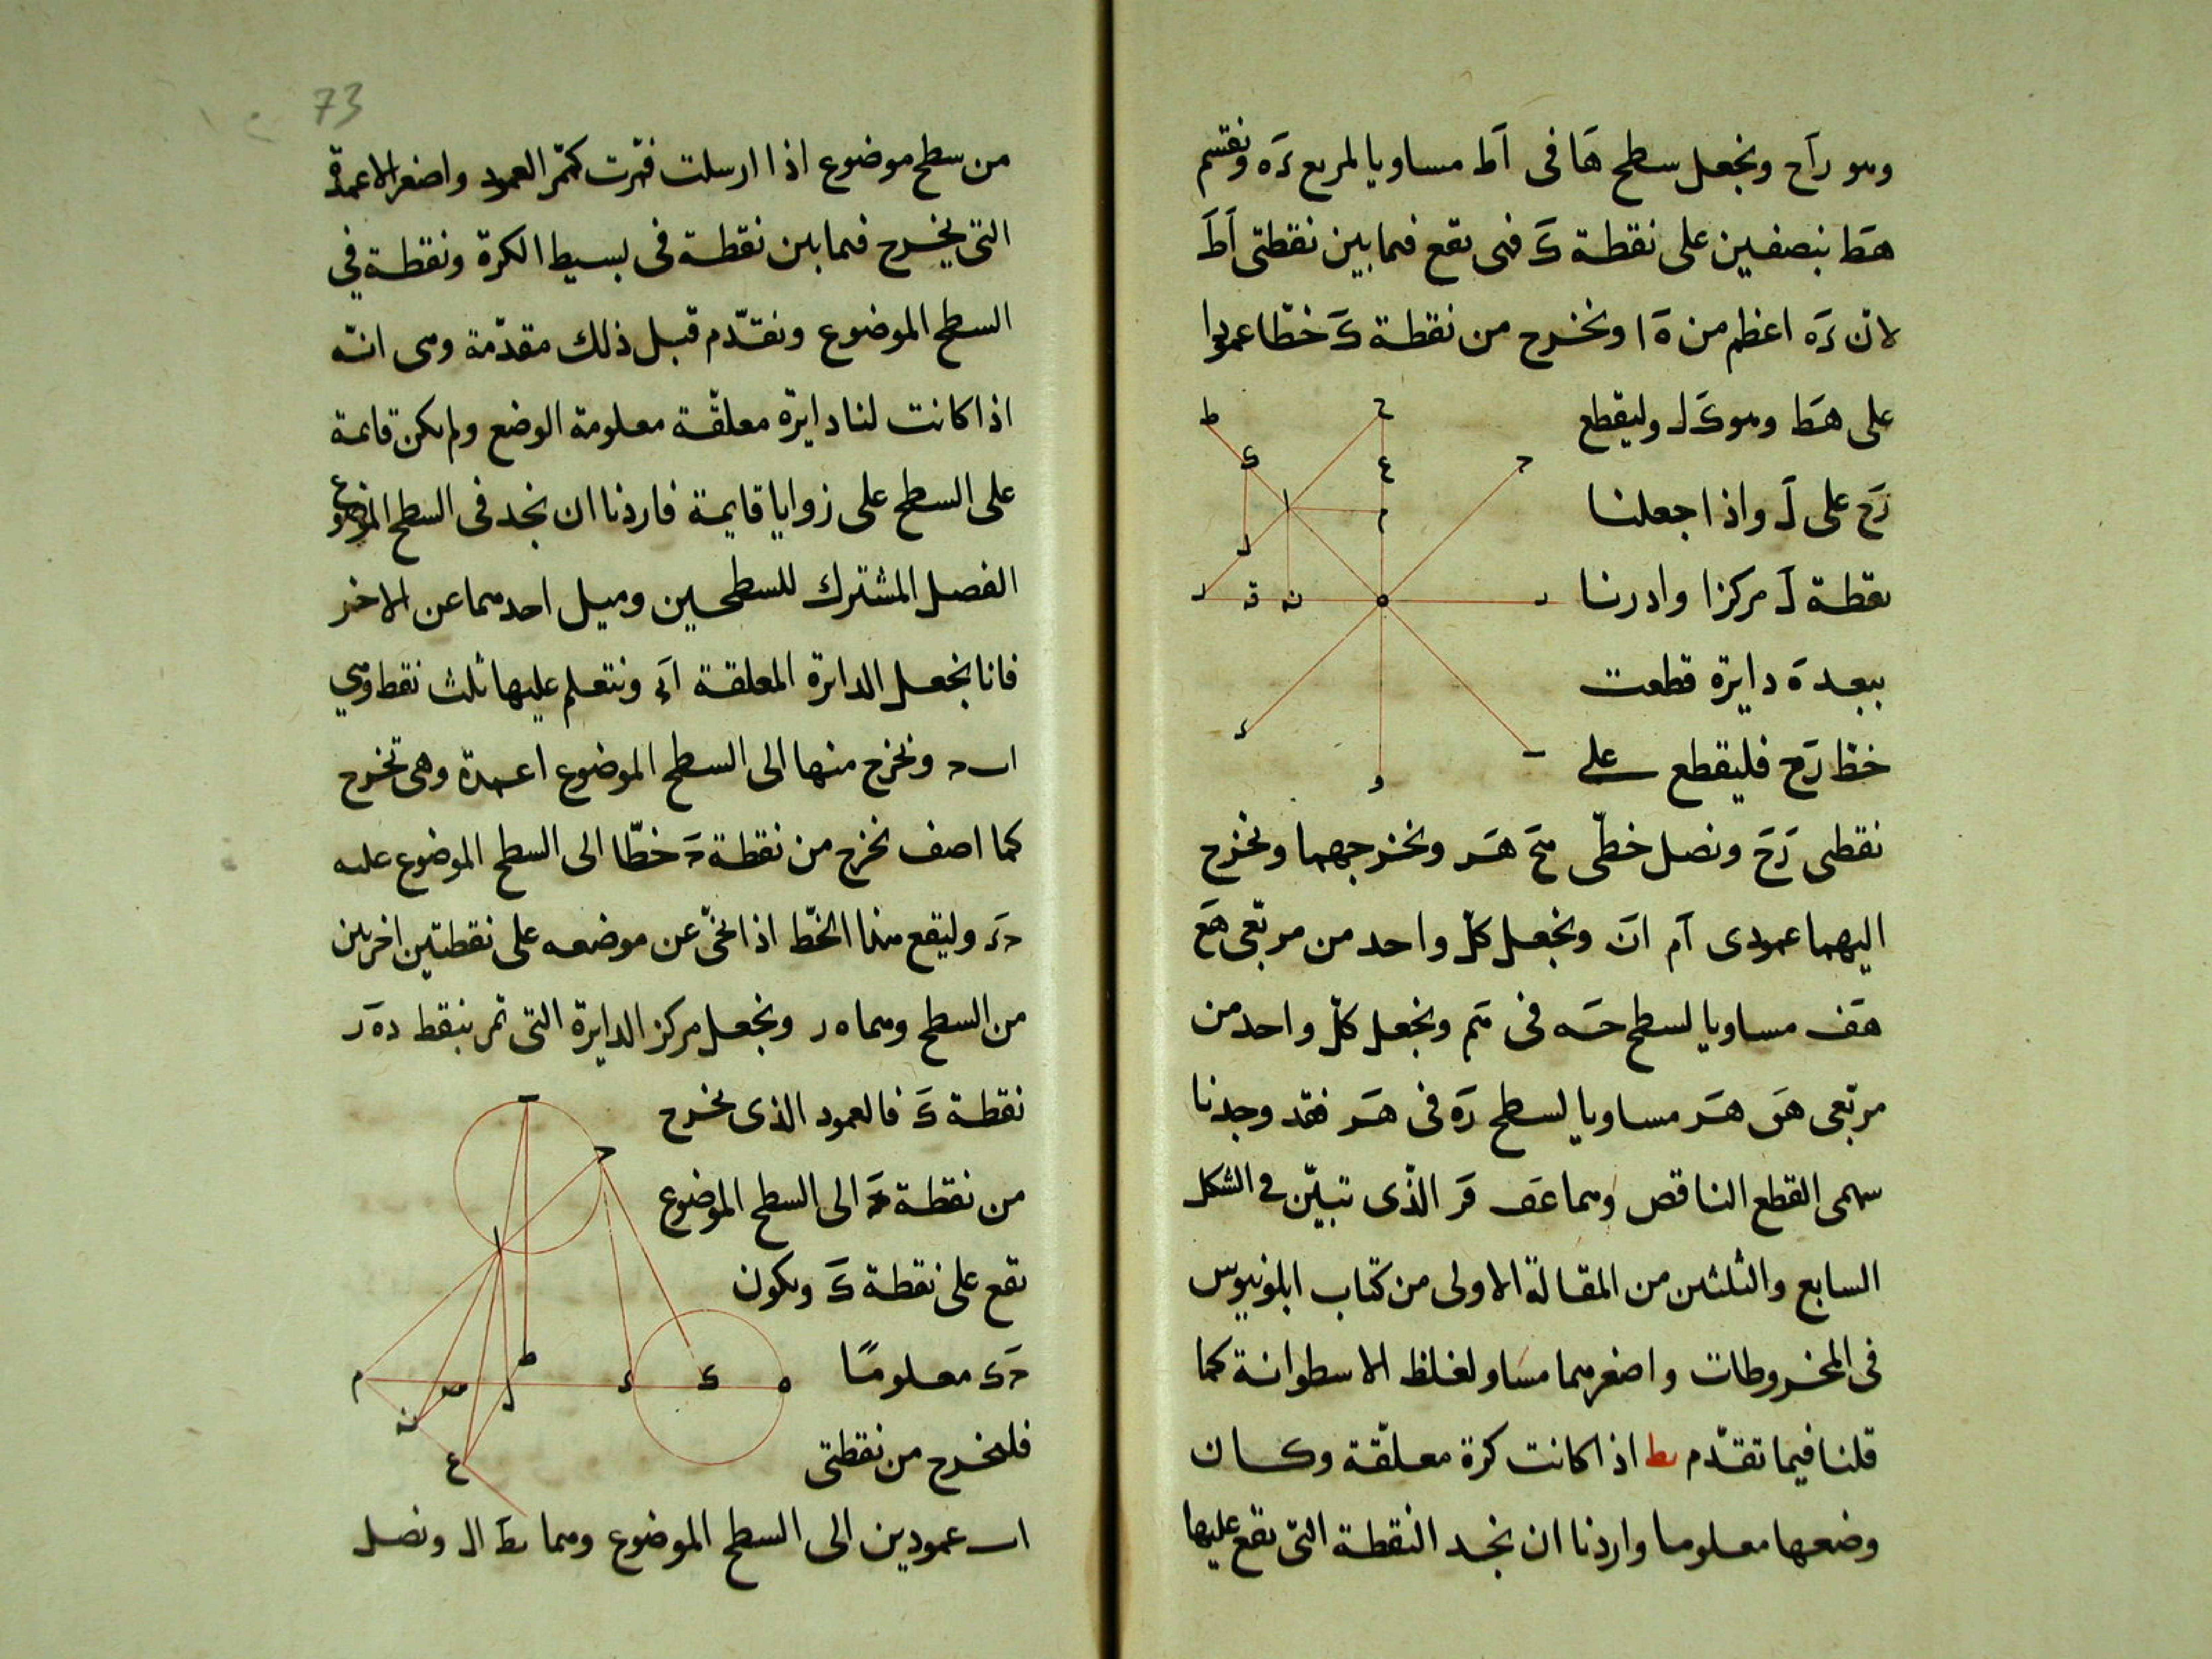 وهو زاح ونجعل سطح ها فى اط مساويا لمربع زه ونقسم
هط بنصفين على نقطة ك فهى تقع فيما بين نقطتى اط
لان زه اعظم من ه ا ونخرج من نقطة ك خطا عمودا
على هط وهو ك ل وليقطع
زح على ل واذا جعلنا
نقطة ل مركزا وادرنا
ببعد ه دايرة قطعت
خط زح فليقطع على
نقطتى زح ونصل خطى مح هر ونخرجهما ونخرج
اليهما عمودى ام ان ونجعل كل واحد من مربعى هع
هف مساويا لسطح حه فى هم ونجعل كل واحد من
مربعى هق هر مساويا لسطح زه فى فقد وجدنا
سهمى القطع الناقص وهما عف قر الذى تبين فى الشكل
السابع والثلثين من المقالة الاولى من كتاب ابلونيوس
فى المخروطات واصغرهما مساو لغلظ الاسطوانة كما
قلنا فيما تقدم يط اذا كانت كرة معلقة وكان
وضعها معلوما واردنا ان نجد النقطة التى تقع عليها
73
من سطح موضوع اذا ارسلت فمرت كممر العمود واصغر الاعمدة
التى تخرج فيما بين نقطة فى بسيط الكرة ونقطة فى
السطح الموضوع ونقدم قبل ذلك مقدمة وهى انه
اذا كانت لنا دايرة معلقة معلومة الوضع ولم يكن قايمة
على السطح على زوايا قايمة فاردنا ان نجد فى السطح الموضوع
الفصل المشترك للسطحين وميل احدهما عن الاخر
فانا نجعل الدايرة المعلقة اب ونتعلم عليها ثلث نقط وهى
اب ح ونخرج منها الى السطح الموضوع اعمدة وهى تخرج
كما اصف نخرج من نقطة ح خطا الى السطح الموضوع عليه
حد وليقع هذا الخط اذا نحى عن موضعه على نقطتين اخريين
من السطح وهما ه ر ونجعل مركز الدايرة التى تمر بنقط د ه ر
نقطة ك فالعمود الذى يخرج
من نقطة ح الى السطح الموضوع
يقع على نقطة ك ويكون
ح ك معلومًا
فليخرج من نقطتى
اب عمودين الى السطح الموضوع وهما بط ال ونصل